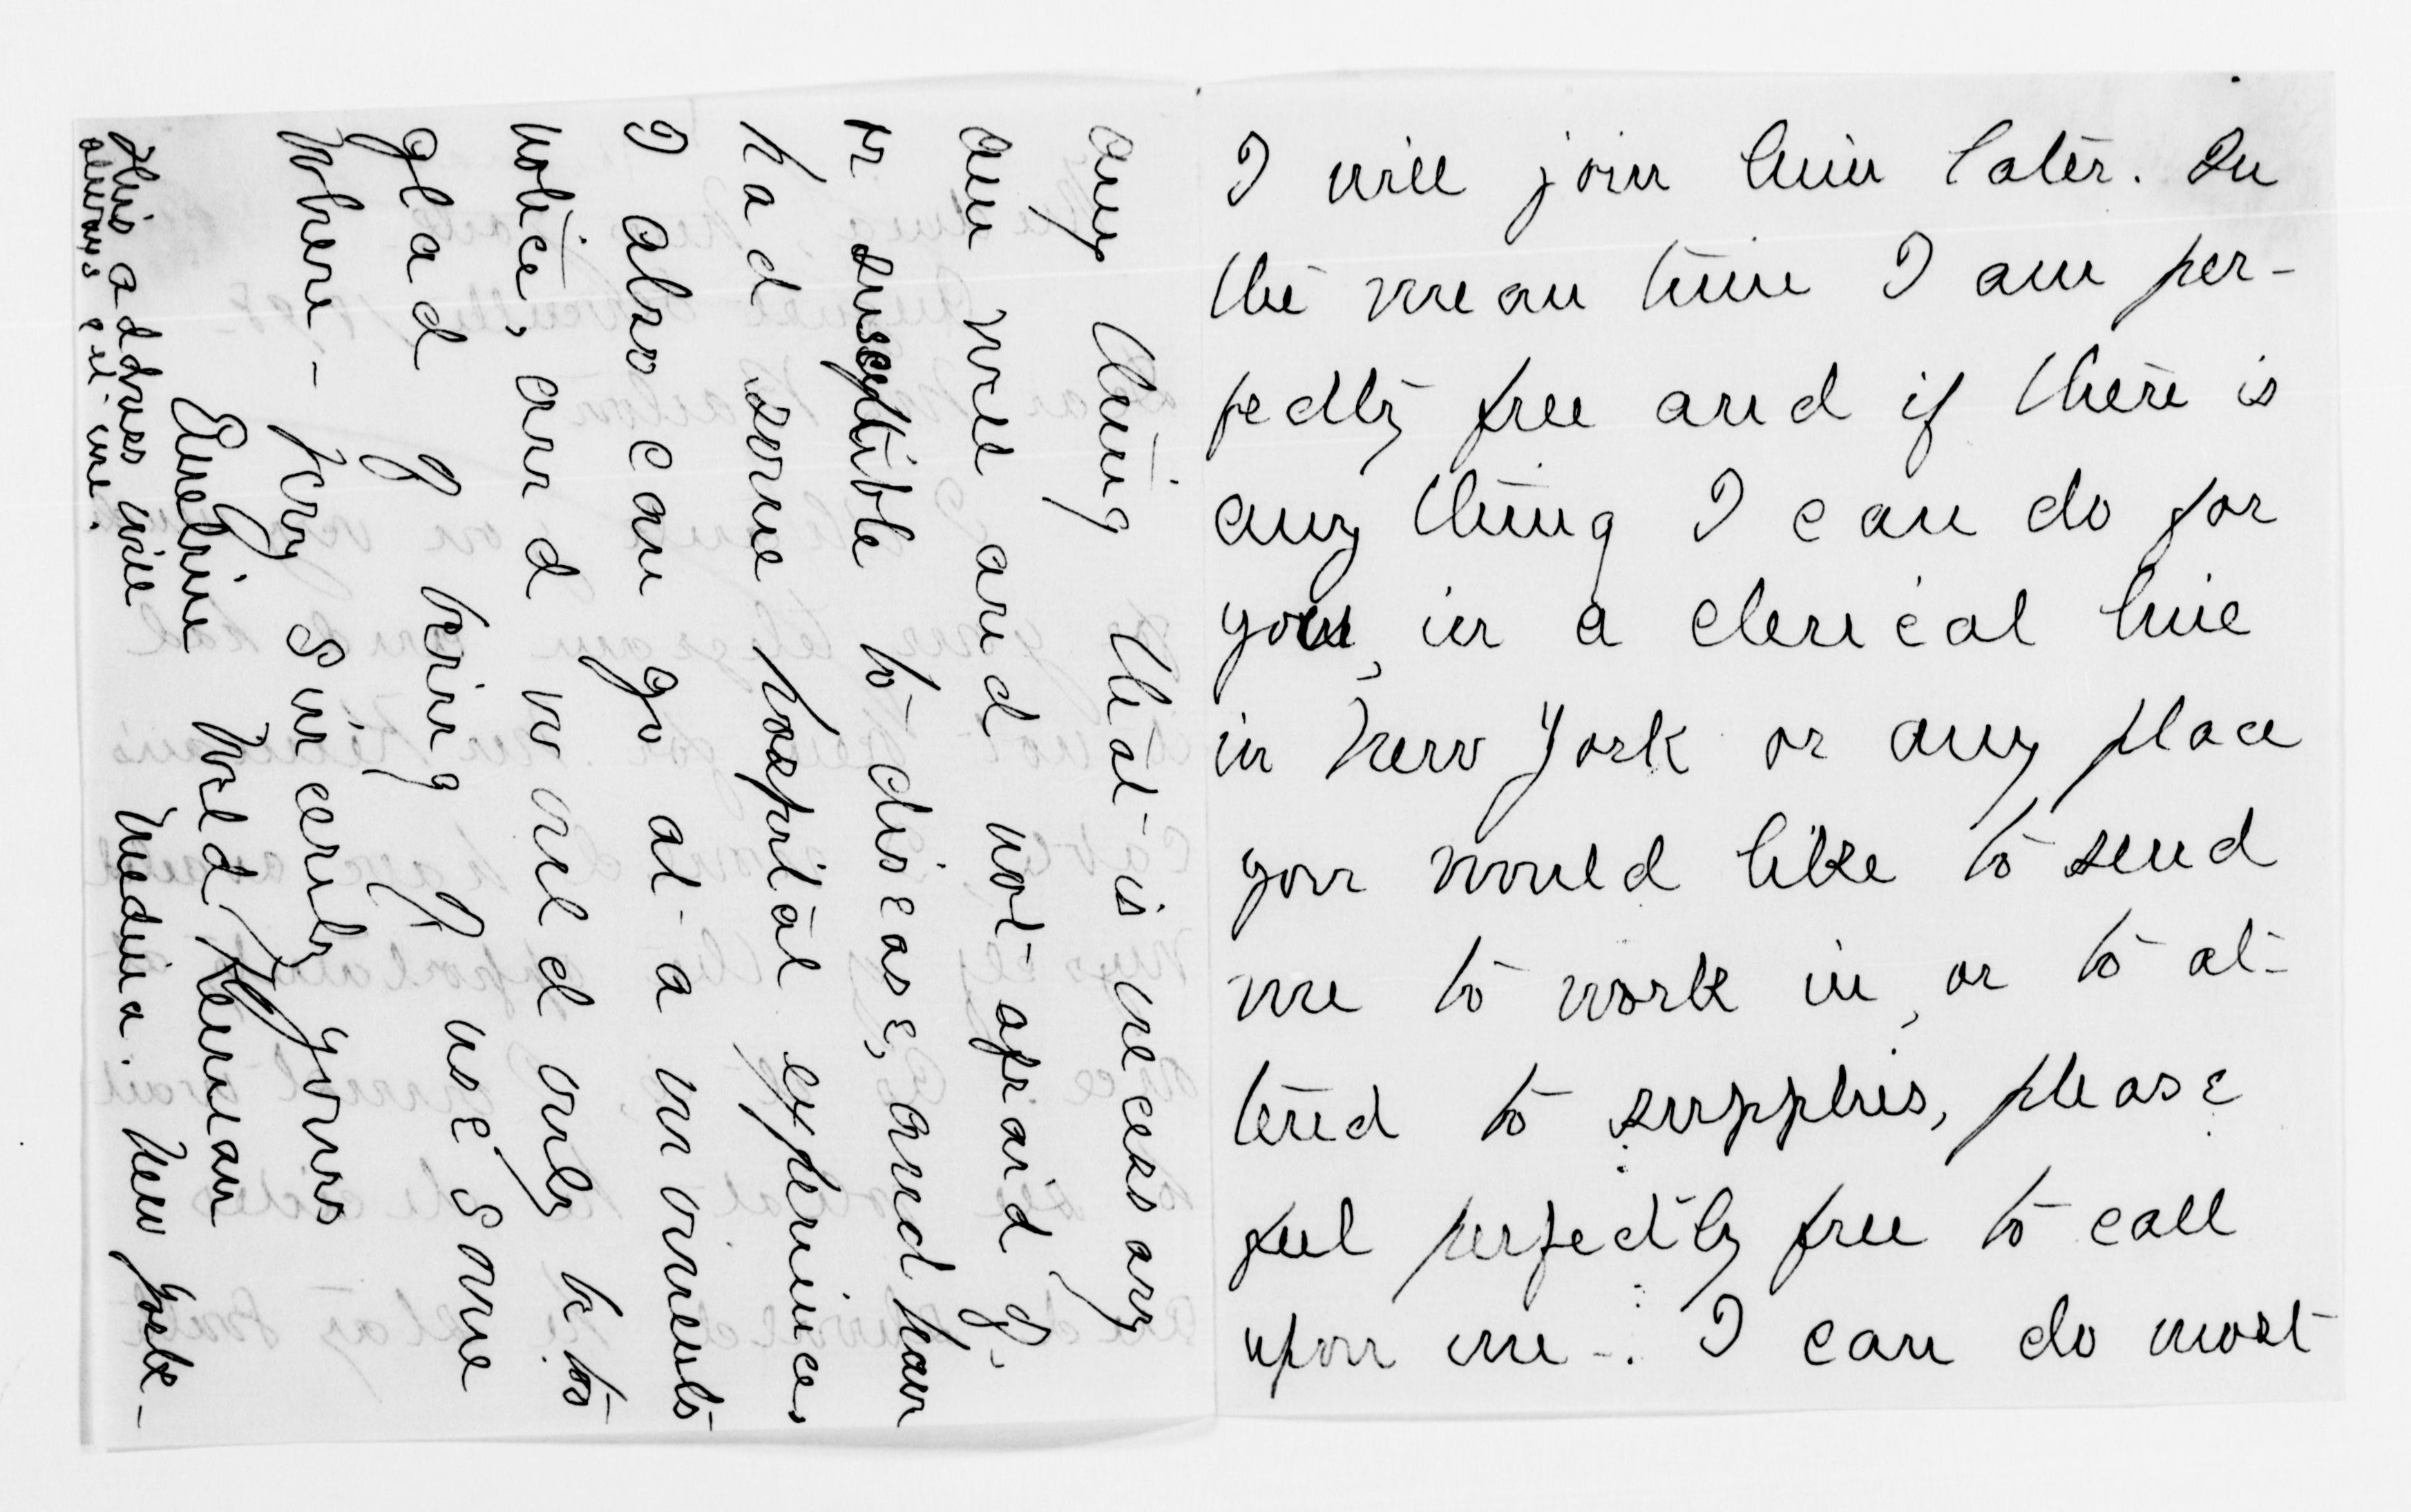 I will join him later. In
the mean time I am per-
fectly free and if there is
any thing I can do for
you, in a clerical line
in New York or any place
you would like to send
me to work in, or to at-
tend to supplies, please
feel perfectly free to call
upon me -. I can do most
any thing that is necessary
am well and not afraid of,
or susceptible to disease, and have
had some hospital experience.
I also can go at a moments
notice, and would only be to
glad of being of use some
where - Very sincerely yours
Emeline Weld Kennan
Medina. New York -
This address will
always get me.